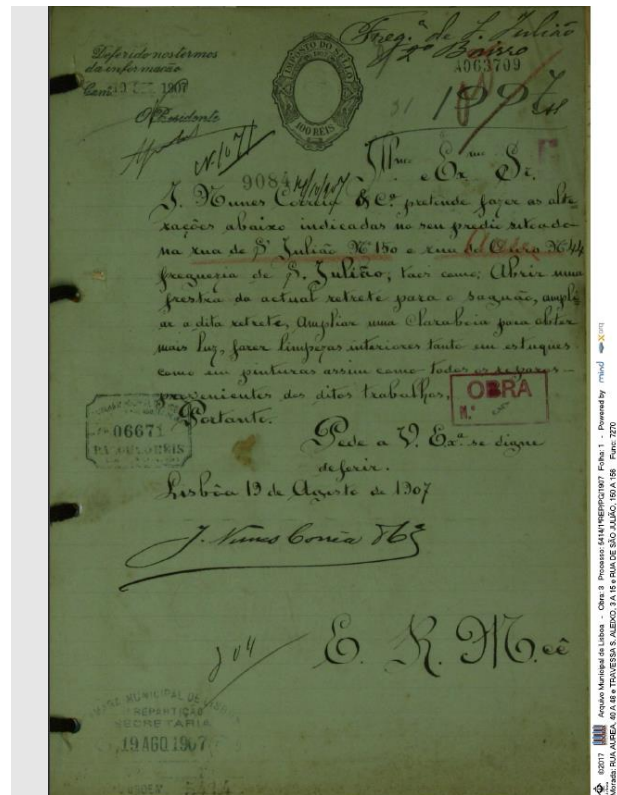 Freg.ª de S. Julião
2º Bairro
A963709
Deferido nos termos
da informação
1907
O Presidente
IMPOSTO DO SELLO
100 RÉIS
31
Nº 1071
9084
Illmo e Exmo Sr.
J. Nunes Corrêa & Cª pretende fazer as alte
rações abaixo indicadas no seu predio situado
na rua de Sº Julião Nº 150 e rua do Ouro Nº 44
freguezia de S. Julião, taes como; Abrir uma
frestra da actual retrete para o saguão, ampli
ar a dita retrete, Ampliar uma Claraboia para obter
mais luz, fazer limpezas interiores tanto em estuques
como em pinturas assim como todos os reparos
provenientes dos ditos trabalhos,
OBRA
N.º
06671
Portanto.
Pede a V. Exª se digne
deferir.
Lisbôa 19 de Agosto de 1907
J. Nunes Corrêa & Cª
E. R. M.cê
204
REPARTIÇÃO
SECRETARIA
19 AGO. 1907
©2017 Arquivo Municipal de Lisboa - Obra: 3 Processo: 5414/1ªREP/PG/1907 Folha: 1 - Powered by mind
Morada: RUA AUREA, 40 A 48 e TRAVESSA S. ALEIXO, 3 A 15 e RUA DE SÃO JULIÃO, 150 A 156 Func: 7270